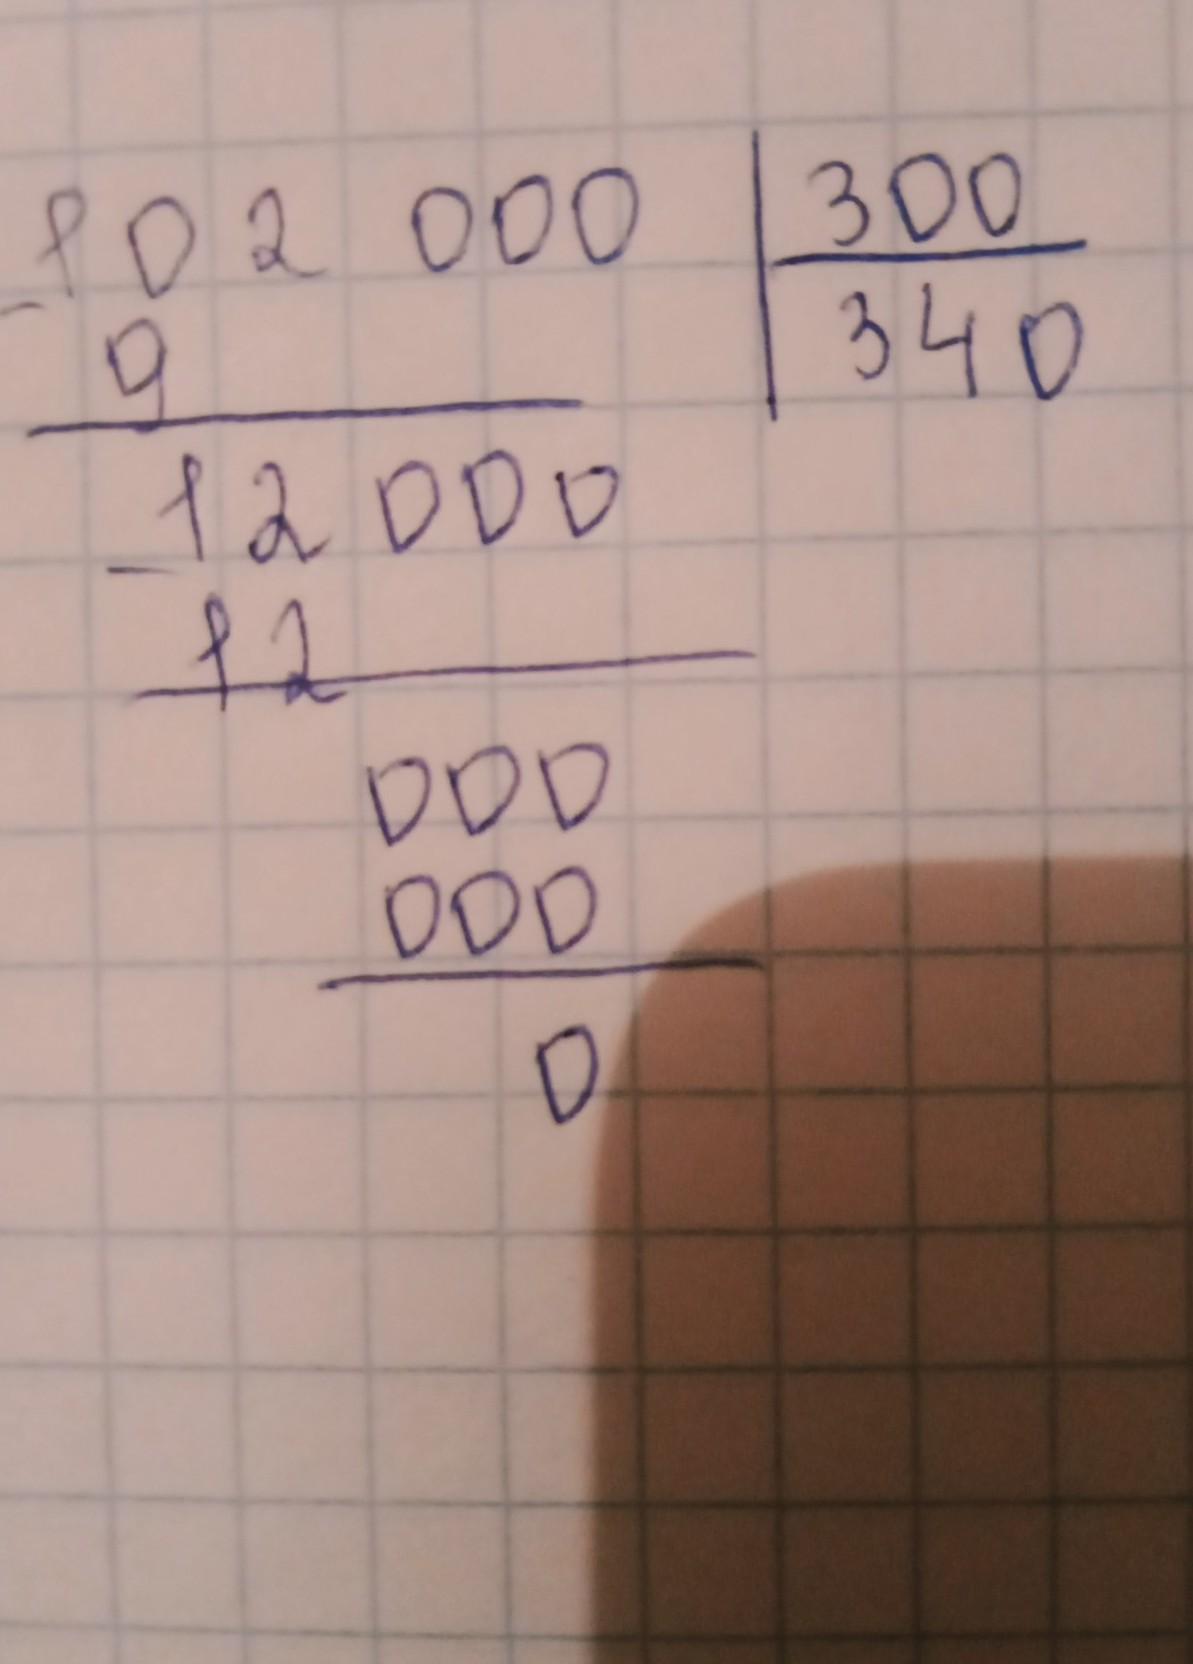 102 000 300
- 9 340
12000
- 12
000
000
0